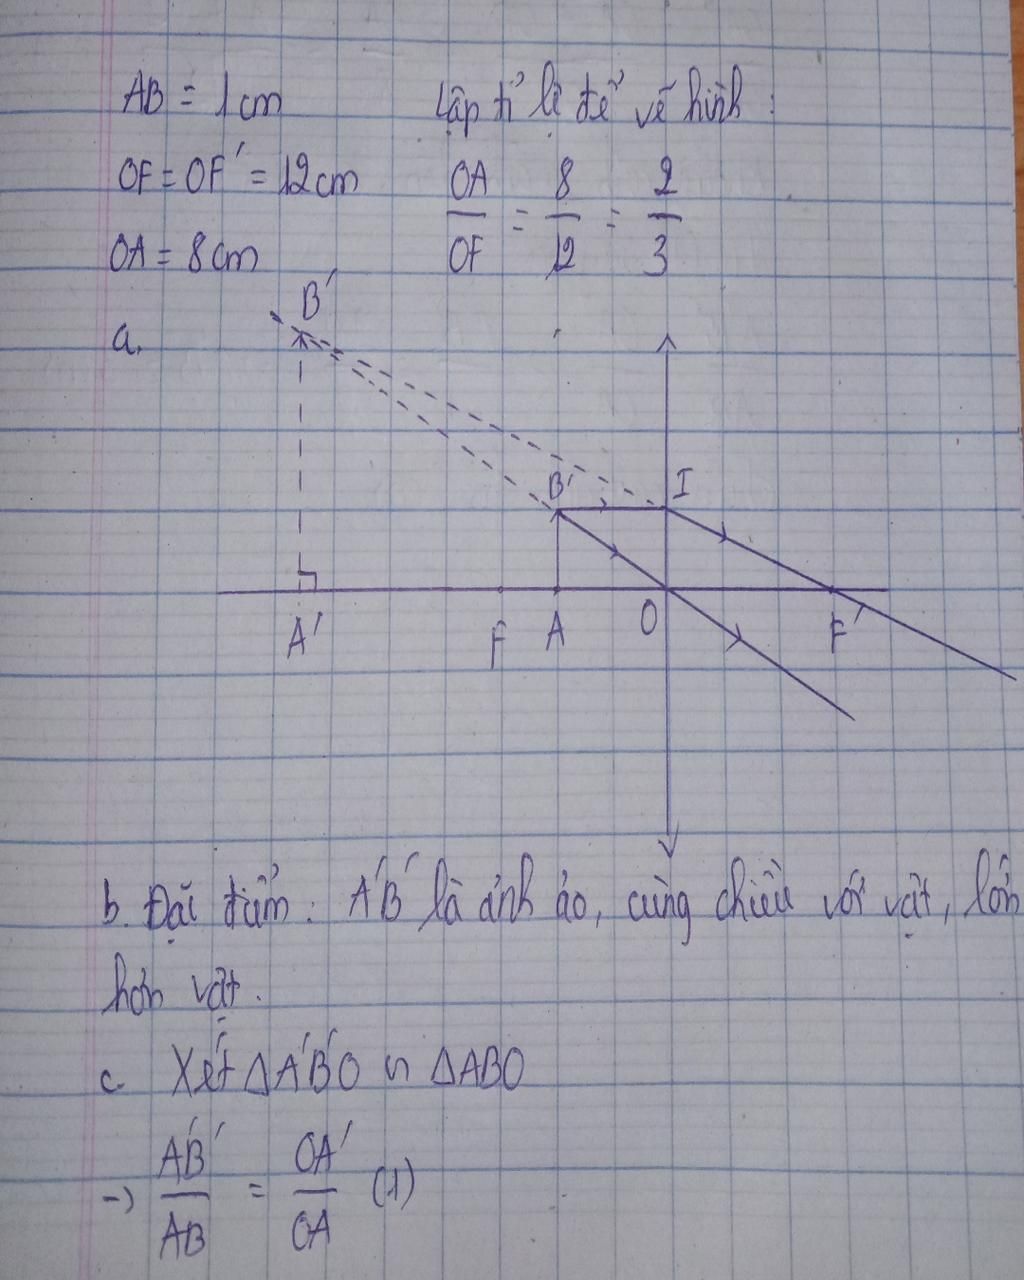 AB = 1 cm
Lập tỉ lệ để vẽ hình :
OF = OF' = 12 cm
OA/OF = 8/12 = 2/3
OA = 8 cm
a.
B'
B' I
A' F A O F'
b. Đặc điểm : A'B' là ảnh ảo, cùng chiều với vật, lớn
hơn vật.
c. Xét ΔA'B'O ∽ ΔABO
→ A'B'/AB = OA'/OA (1)